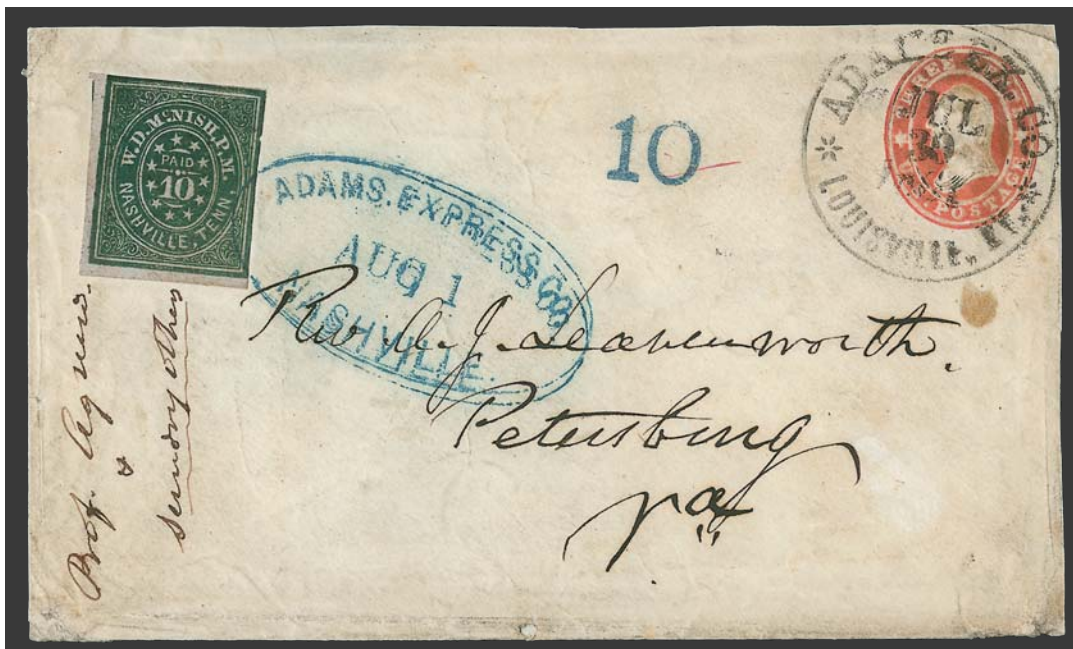 W.D. McNISH, P.M.
PAID
10
NASHVILLE, TENN.
ADAMS. EXPRESS CO
AUG 1
NASHVILLE.
10
ADAMS EX. CO
JUL
30
LOUISVILLE, KY.
THREE
CTS. POSTAGE
Rev. A. J. Leavenworth.
Petersburg
Va
Prof. Agnew.
&
sundry others